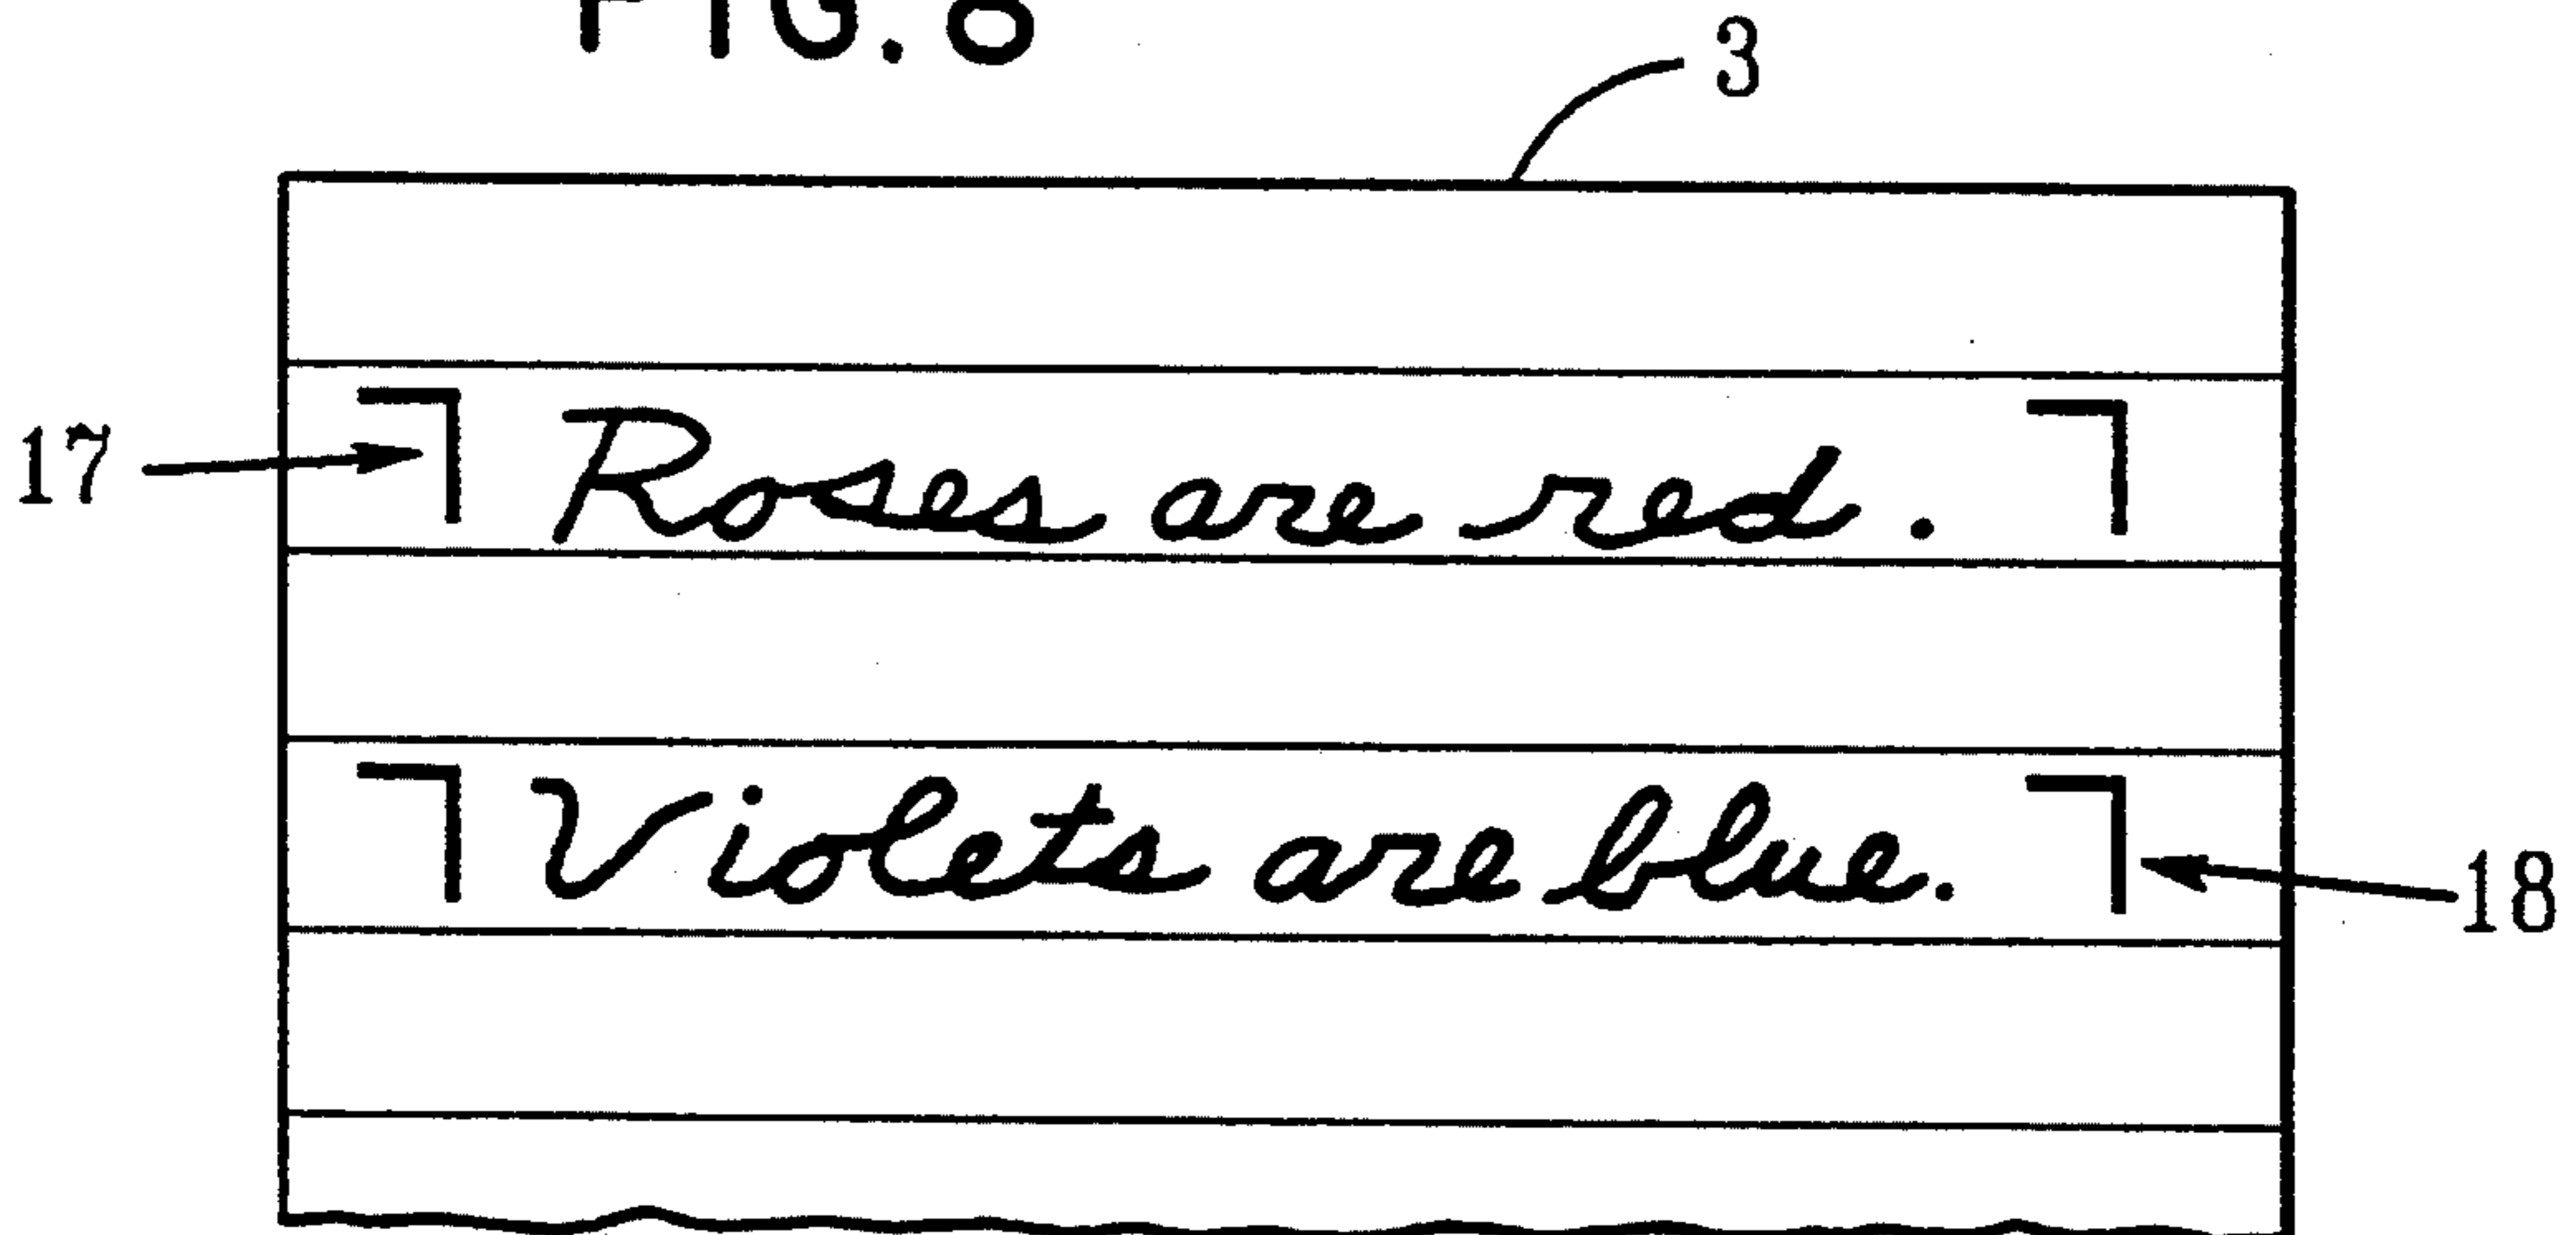 FIG. 8
3
17
Roses are red.
Violets are blue.
18